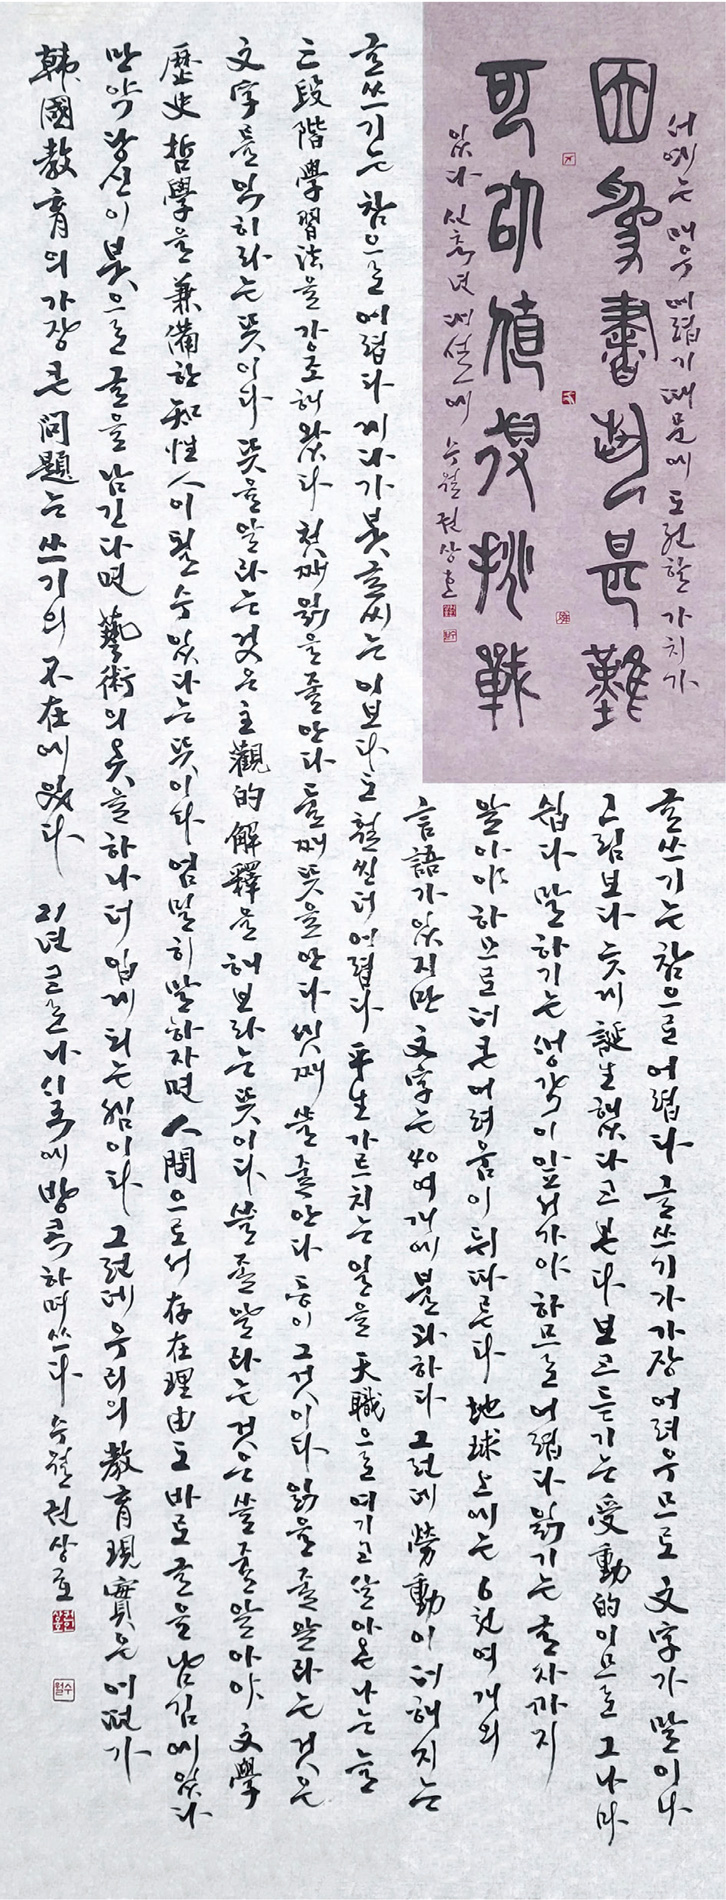 서예는 매우 어렵기 때문에 도전할 가치가
因爲書是難
可値得挑戰
있다 신축년 대설에 수월 권상호
글쓰기는 참으로 어렵다 글쓰기가 가장 어려우므로 文字가 말이나
그림보다 늦게 誕生했다고 본다 보고 듣기는 受動的이므로 그나마
쉽다 말하기는 생각이 앞서가야 하므로 어렵다 읽기는 글자까지
알아야 하므로 더 큰 어려움이 뒤따른다 地球上에는 6천여 개의
言語가 있지만 文字는 40여 개에 불과하다 그런데 勞動이 더해지는
글쓰기는 참으로 어렵다 게다가 붓글씨는 이보다도 훨씬 더 어렵다 平生 가르치는 일을 天職으로 여기고 살아온 나는 늘
三段階學習法을 강조해 왔다 첫째 읽을 줄 안다 둘째 뜻을 안다 셋째 쓸 줄 안다 등이 그것이다 읽을 줄 알라는 것은
文字를 익히라는 뜻이다 뜻을 알라는 것은 主觀的 解釋을 해보라는 뜻이다 쓸 줄 알라는 것은 쓸 줄 알아야 文學
歷史 哲學을 兼備한 知性人이 될 수 있다는 뜻이다 엄밀히 말하자면 人間으로서 存在理由도 바로 글을 남김에 있다
만약 당신이 붓으로 글을 남긴다면 藝術의 옷을 하나 더 입게 되는 셈이다 그런데 우리의 敎育現實은 어떤가
韓國敎育의 가장 큰 問題는 쓰기의 不在에 있다 21년 크로나시국에 방콕하며 쓰다 수월 권상호